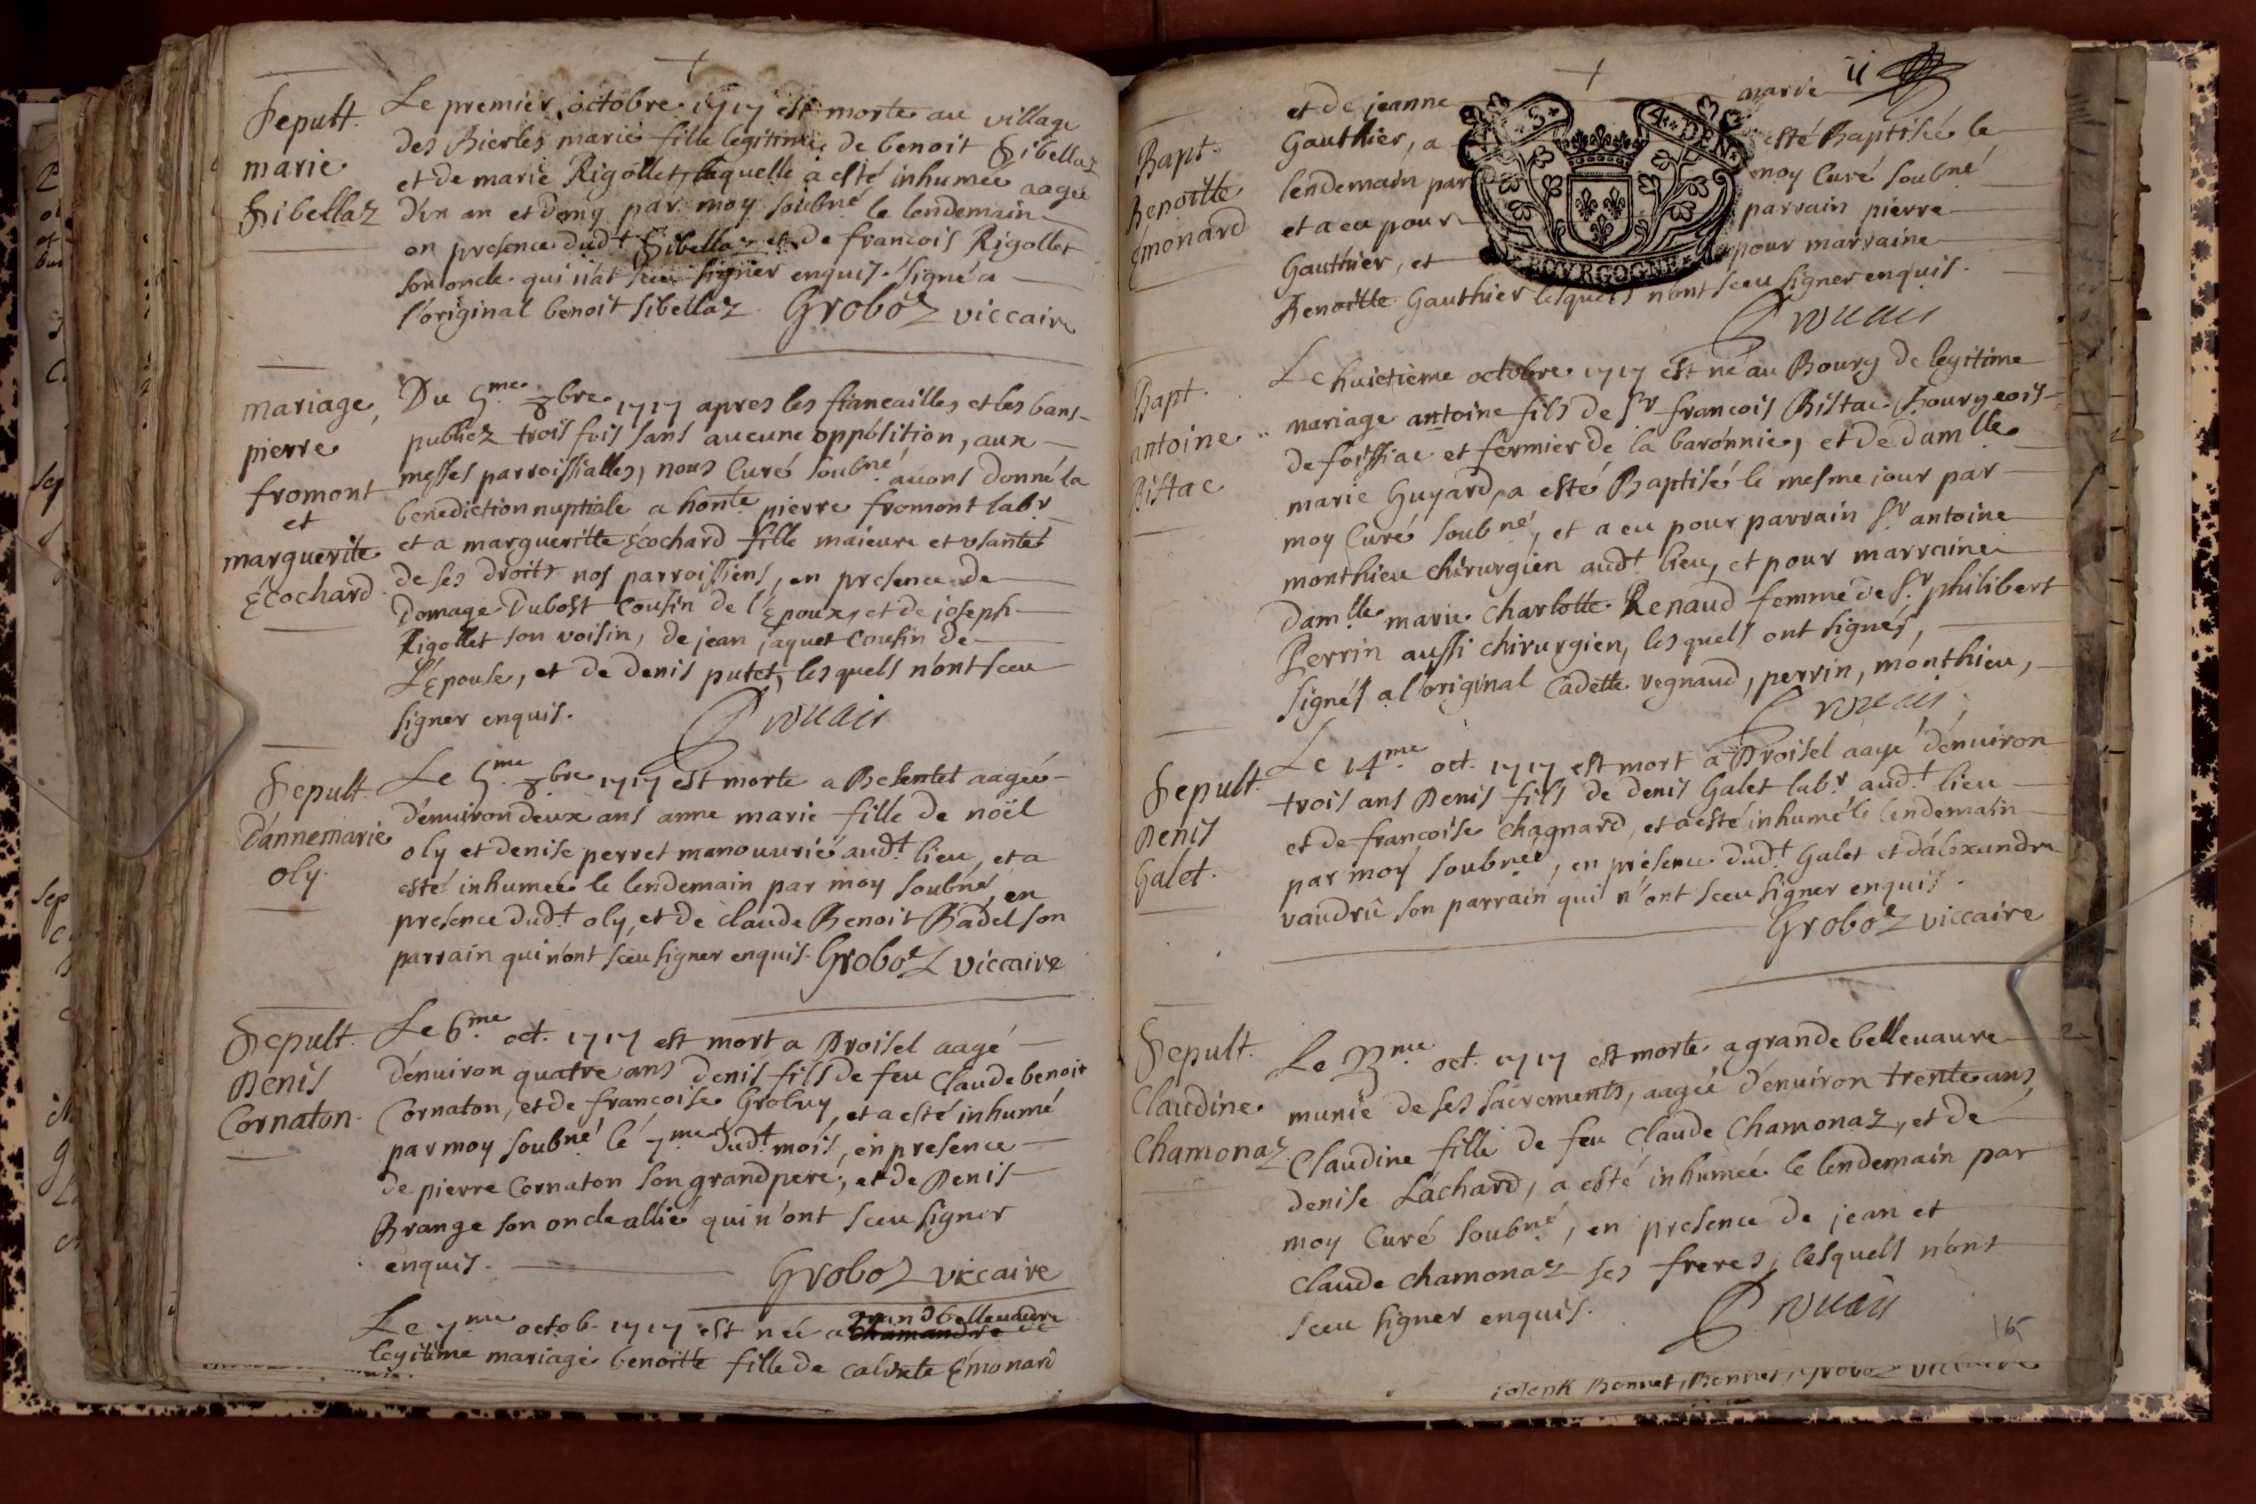 Sepult.
marie
Sibellaz
Le premier octobre 1717 est morte au village
des Bierles marie fille legitime de benoit Sibellaz
et de marie Rigollet, laquelle a esté inhumeé aageé
d'un an et demy par moy soubné le lendemain
en presence dudt Sibellaz et de francois Rigollet
son oncle qui n'at sceu signer enquis. signé a
l'original benoit sibellaz. Groboz viccaire
mariage
pierre
fromont
et
marguerite
Écochard
Du 5me 8bre 1717 apres les fiancailles et les bans
publiez trois fois sans aucune opposition, aux
messes parroissialles, nous Curé soubné avons donné la
benediction nuptiale a honte pierre fromont labr
et a margueritte Écochard fille maieure et usante
de ses droits nos parroissiens, en presence de
Domage Dubost Cousin de l'Epoux, et de joseph
Rigollet son voisin, de jean jaquet Cousin de
L'Epouse, et de denis putet, lesquels n'ont sceu
signer enquis.
Sepult.
d'annemarie
oly.
Le 5me 8bre 1717 est morte a Besentet aageé
d'enuiron deux ans anne marie fille de noël
oly et denise perret manouurié audt lieu, et a
esté inhumeé le lendemain par moy soubné en
presence dudt oly, et de claude Benoit Badel son
parrain qui n'ont sceu signer enquis. Groboz viccaire
Sepult.
Denis
Cornaton.
Le 6me oct. 1717 est mort a Droisel aagé
d'enuiron quatre ans denis fils de feu Claude benoit
Cornaton, et de francoise Grobuy, et a esté inhumé
par moy soubné le 7me dudt mois, en presence
de pierre Cornaton son grand pere, et de Denis
Brange son oncle allié qui n'ont sceu signer
enquis. Groboz viccaire
grand bellevaure
Le 7me octob. 1717 est neé a de
legitime mariage benoitte fille de Émonard
ii
Bapt.
Benoitte
Émonard
et de jeanne marie
Gauthier, a esté Baptiseé le
lendemain par moy Curé soubné
et a eu pour parrain pierre
Gauthier, et pour marraine
Benoitte Gauthier lesquels n'ont sceu signer enquis.
S. 4. DEN.
BOURGOGNE
Bapt.
antoine
Bistac
Le huictieme octobre 1717 est né au Bourg de legitime
mariage antoine fils de Sr francois Bistac bourgeois
de foissiac et fermier de la baronnie, et de damlle
marie Guyard, a esté Baptisé le mesme jour par
moy Curé soubné, et a eu pour parrain Sr antoine
monthieu chirurgien audt lieu, et pour marraine
damlle marie Charlotte Renaud femme de Sr philibert
Perrin aussi chirurgien, lesquels ont signés,
signés a l'original Cadette regnaud, perrin, monthieu,
Sepult.
Denis
Galet.
Le 14me oct. 1717 est mort a Droisel aagé d'enuiron
trois ans Denis fils de denis Galet labr audt lieu
et de francoise Chagnard, et a esté inhumé le lendemain
par moy soubné, en presence dudt Galet et d'alexandre
vaudrü son parrain qui n'ont sceu signer enquis.
Groboz viccaire
Sepult.
Claudine
Chamonaz
Le oct. 1717 est morte a grande bellevaure
munie de ses sacrements, aageé d'enuiron trente ans
Claudine fille de feu Claude Chamonaz, et de
denise Lachard, a esté inhumeé le lendemain par
moy Curé soubné, en presence de jean et
claude chamonaz ses freres, lesquels n'ont
sceu signer enquis.
165
joseph Bonnet, Bonnet, Groboz viccaire